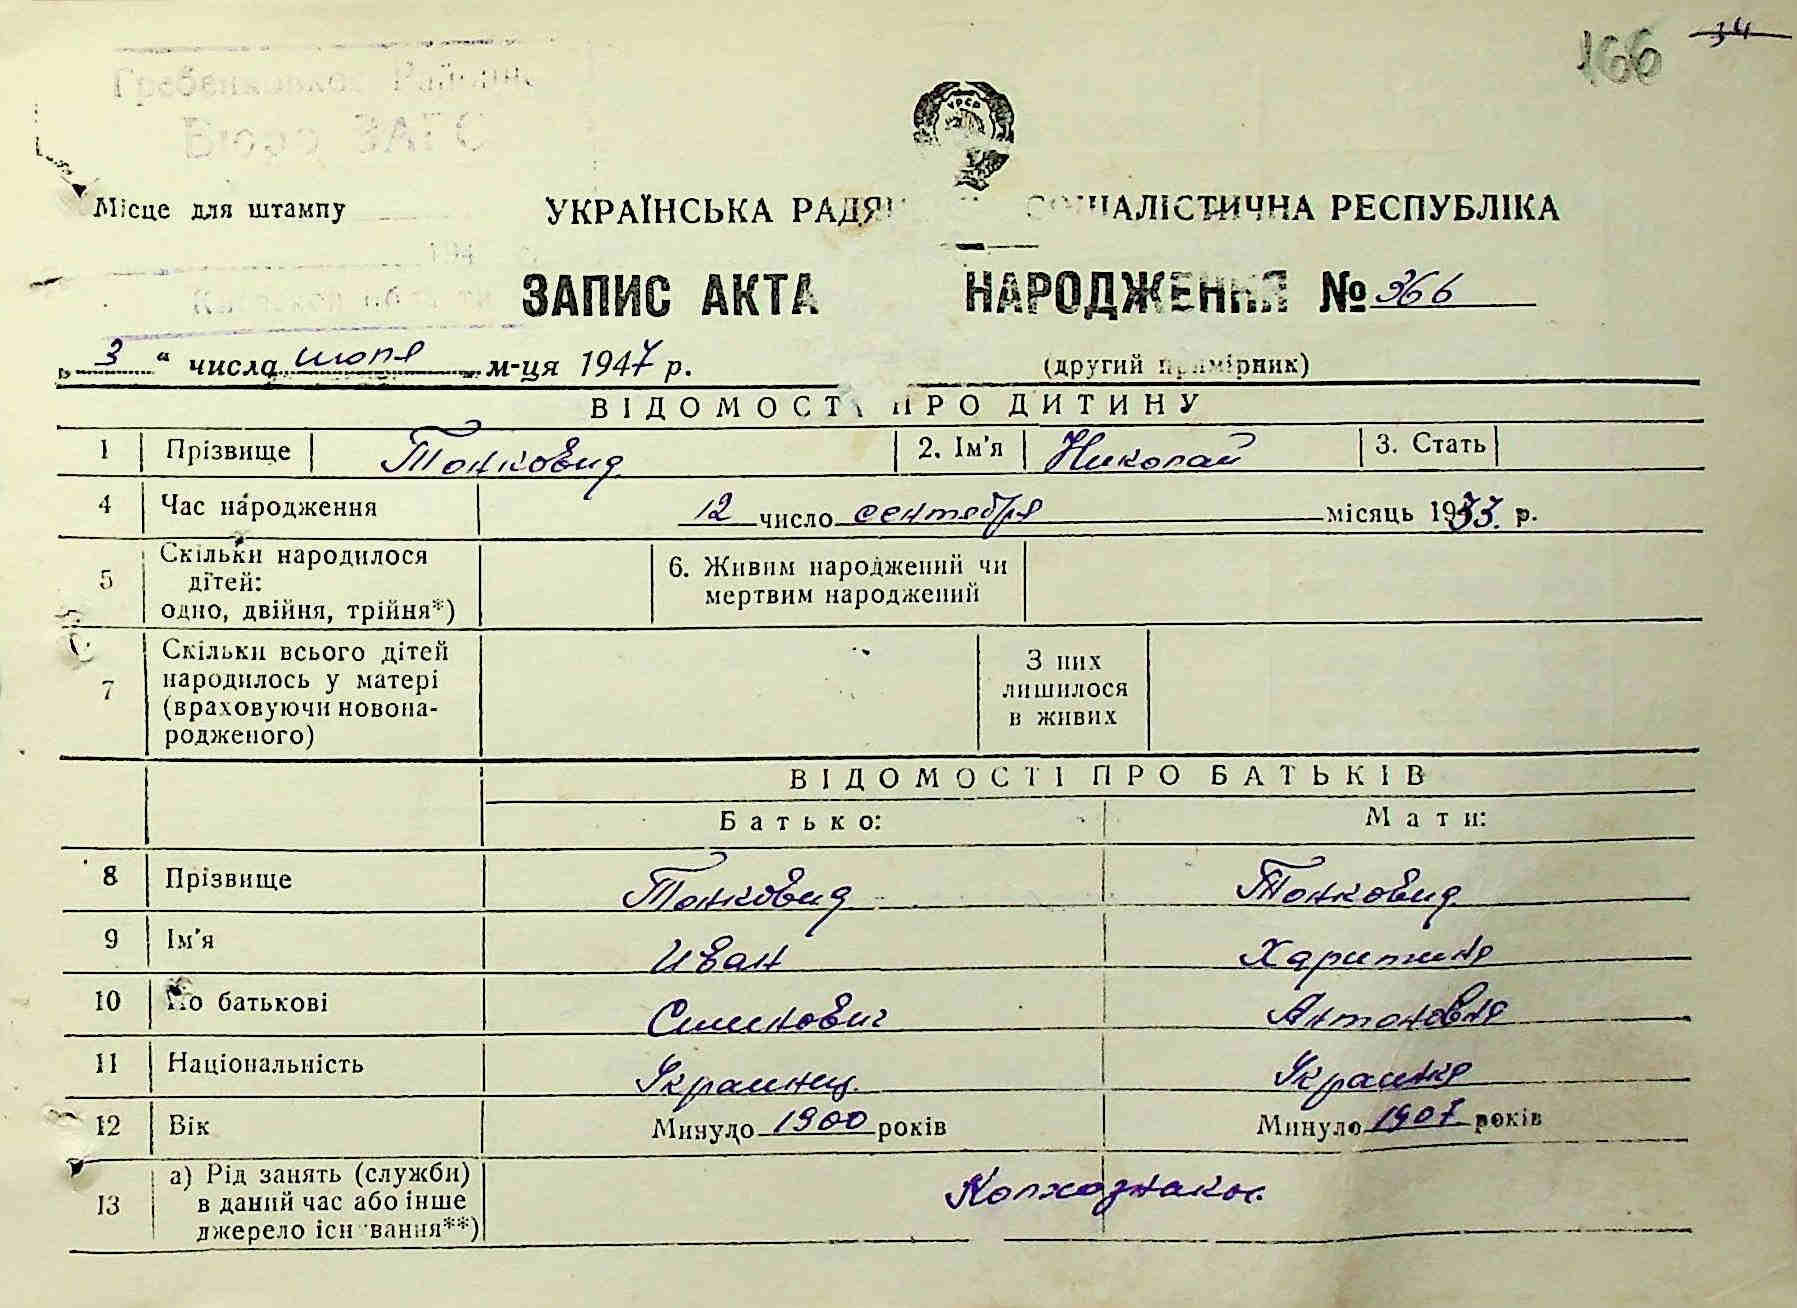 166 34
Гребенковское Районное
Бюро ЗАГС
УРСР
Місце для штампу
УКРАЇНСЬКА РАДЯ СОЦІАЛІСТИЧНА РЕСПУБЛІКА
194
ЗАПИС АКТА НАРОДЖЕННЯ № 366
„ 3 “ числа июля м-ця 1947 р. (другий примірник)
ВІДОМОСТІ ПРО ДИТИНУ
1 Прізвище Тонковид 2. Ім'я Николай 3. Стать
4 Час народження 12 число сентября місяць 1933. р.
5 Скільки народилося дітей: одно, двійня, трійня*) 6. Живим народжений чи мертвим народжений
7 Скільки всього дітей народилось у матері (враховуючи новона-родженого) З них лишилося в живих
ВІДОМОСТІ ПРО БАТЬКІВ
Батько: Мати:
8 Прізвище Тонковид Тонковид
9 Ім'я Иван Харитина
10 По батькові Семенович Антоновна
11 Національність Украинец Украинка
12 Вік Минуло 1900 років Минуло 1907 років
13 а) Рід занять (служби) в даний час або інше джерело існування**) Колхозники